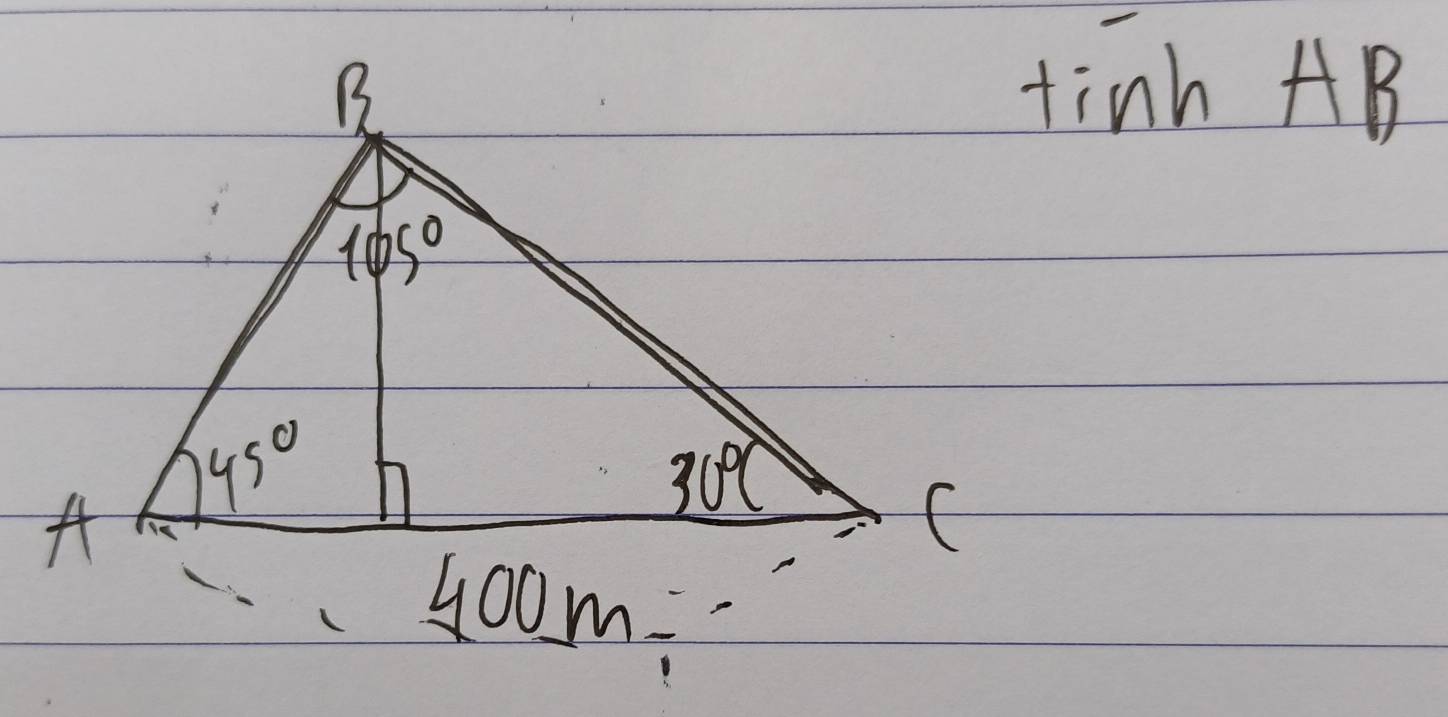 tính AB
B
105°
45°
30°
A
C
400m